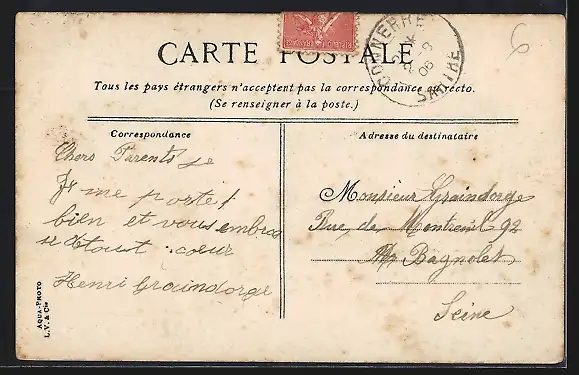 CARTE POSTALE
CONNERRÉ
8
06
SARTHE
6
Tous les pays étrangers n'acceptent pas la correspondance au recto.
(Se renseigner à la poste.)
Correspondance
Chers Parents je
Je me porte
bien et vous embras
se de tout cœur
Henri Graindorge
AQUA-PHOTO
L. V. & Cie
Adresse du destinataire
Monsieur Graindorge
Rue de Montreuil 92
Bagnolet
Seine